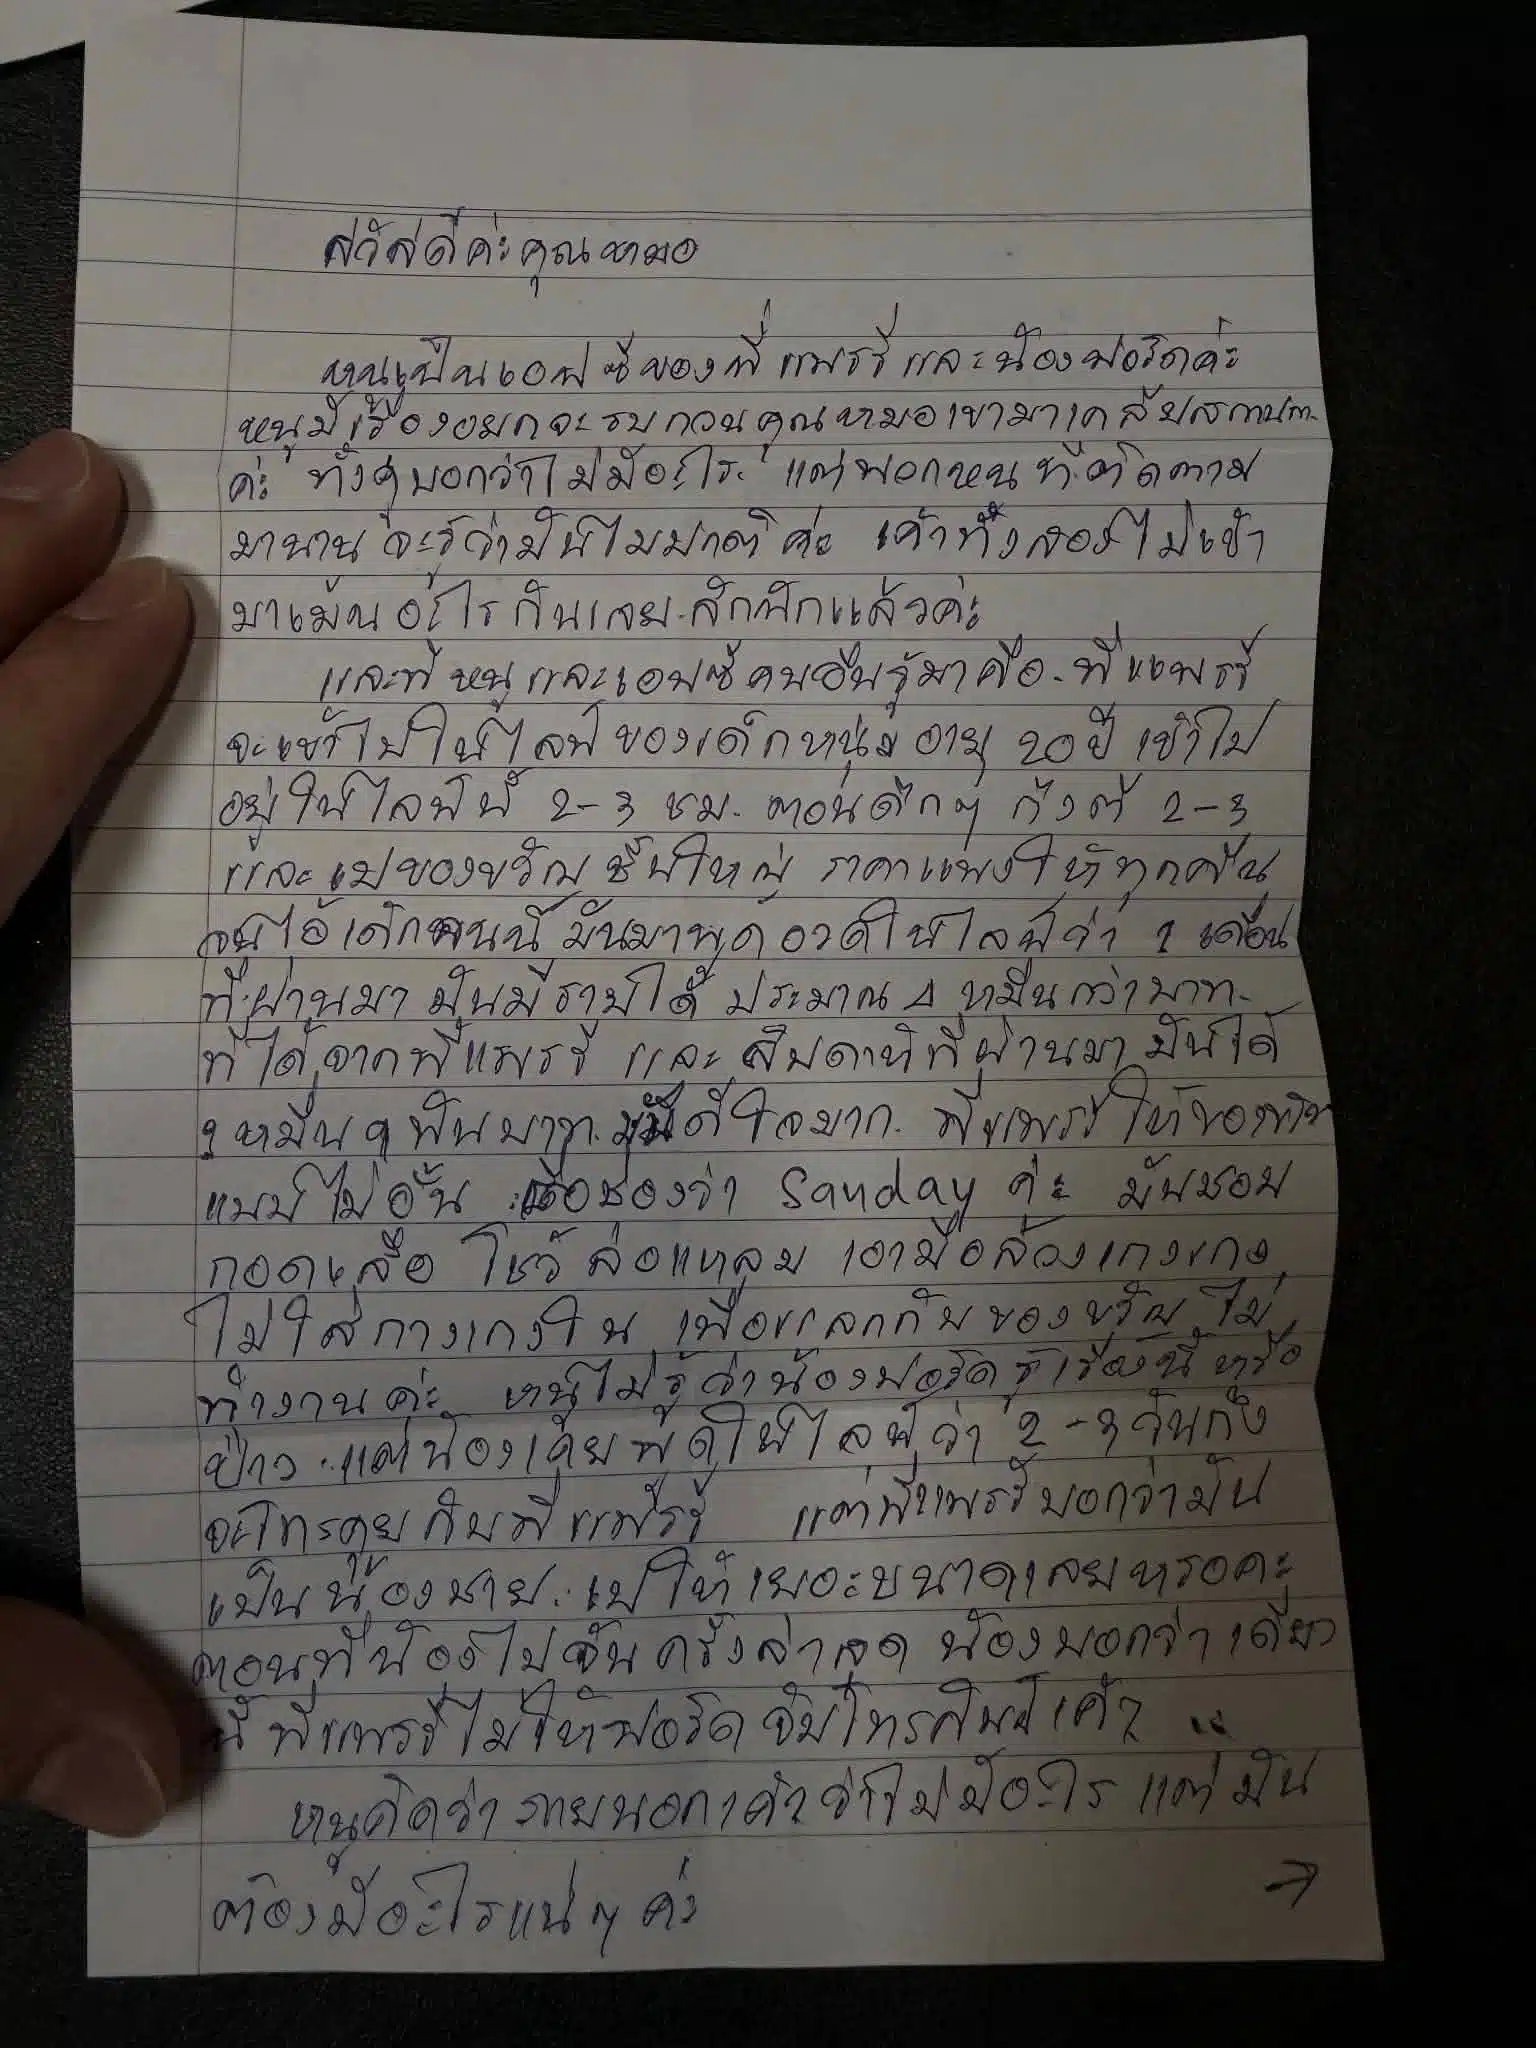 สวัสดีค่ะคุณหมอ
หนูเป็นเอฟซีของพี่แพรรี่และน้องฟอร์ดค่ะ
หนูมีเรื่องอยากจะรบกวนคุณหมอเขามาเคลียสถานกา
ค่ะ ทั้งคู่บอกว่าไม่มีอะไร แต่พวกหนูที่ติดตาม
มานานจะรู้ว่ามันไม่ปกติค่ะ เค้าทั้งสองไม่เข้า
มาเม้นอะไรกันเลย.สักพักแล้วค่ะ
และที่หนูและเอฟซีคนอื่นรู้มาคือ.พี่แพรรี่
จะเข้าไปในไลฟ์ของเด็กหนุ่มอายุ 20 ปี เข้าไป
อยู่ในไลฟ์นี้ 2-3 ชม. ตอนดึกๆ ถึงตี 2-3
และเปย์ของขวัญชิ้นใหญ่ ราคาแพงให้ทุกคืน
จนไอ้เด็กคนนี้มันมาพูดอวดในไลฟ์ว่า 1 เดือน
ที่ผ่านมา มันมีรายได้ ประมาณ 4 หมื่นกว่าบาท.
ที่ได้จากพี่แพรรี่ และสัปดาห์ที่ผ่านมา มันได้
หมื่น พันบาท. มันดีใจมาก. พี่แพรรี่ให้ของขวัญ
แบบไม่อั้น ชื่อช่องว่า Sanday ค่ะ มันชอบ
ถอดเสื้อ โชว์ ล่อแหลม เอามือล้วงเกงเกง
ไม่ใส่กางเกงใน เพื่อแลกกับของขวัญ ไม่
ทำงานค่ะ หนูไม่รู้ว่าน้องฟอร์ดรู้เรื่องนี้หรือ
ป่าว..แต่น้องเคยพูดในไลฟ์ว่า 2-3 วันถึง
จะโทรคุยกับพี่แพรรี่ แต่พี่แพรรี่บอกว่ามัน
เป็นน้องชาย. เปให้เยอะขนาดเลยหรอคะ
ตอนที่น้องไปจีนครั้งล่าสุด น้องบอกว่าเดี๋ยว
นี้พี่แพรรี่ไม่ให้ฟอร์ดจับโทรศัพท์เค้า
หนูคิดว่าภายนอกเค้าว่าไม่มีอะไร แต่มัน
ต้องมีอะไรแน่ๆ ค่ะ
→